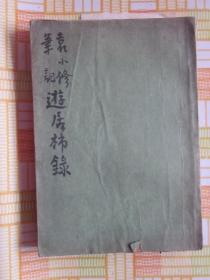 袁小修
筆記
遊居柿錄